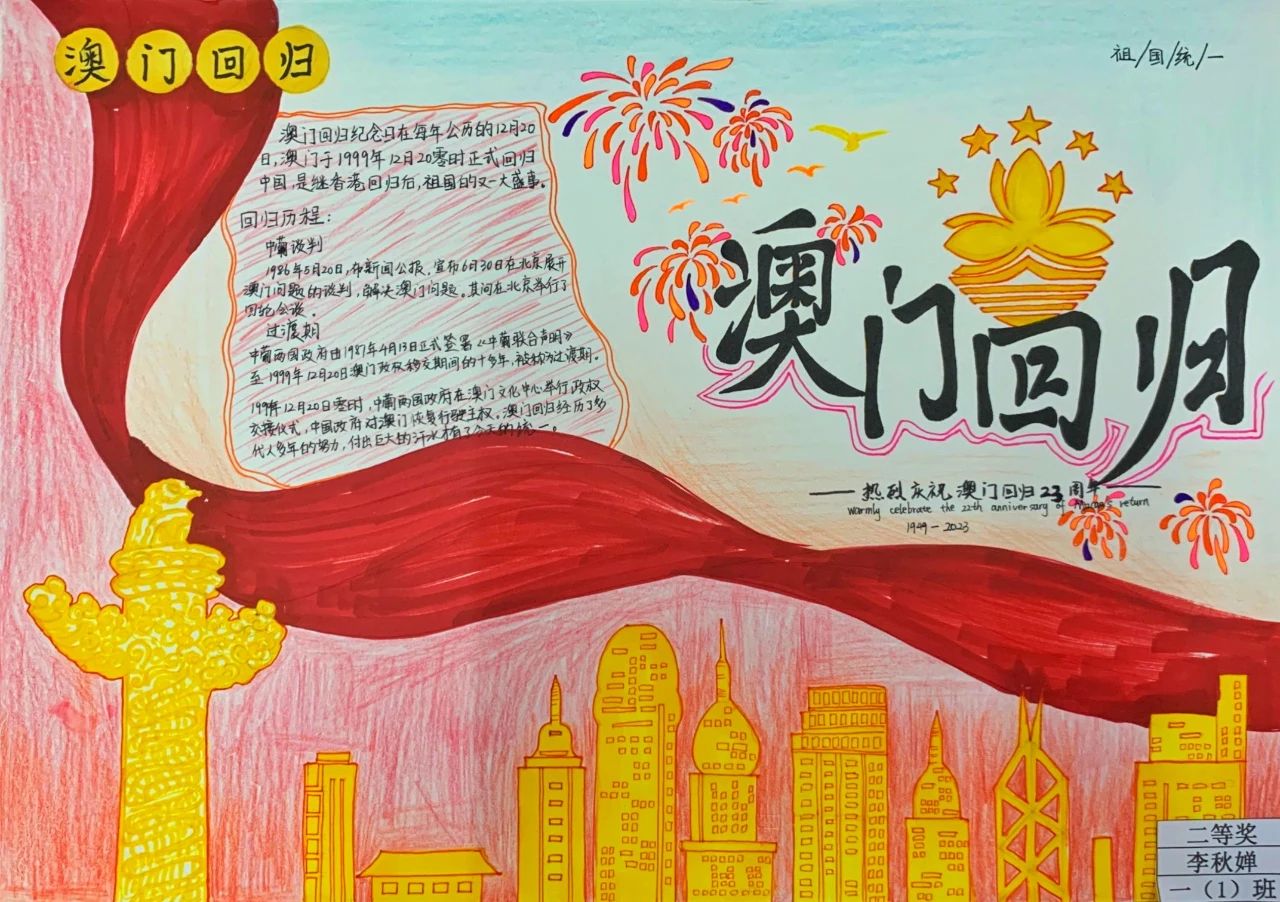 澳门回归
祖/国/统/一
澳门回归纪念日在每年公历的12月20
日，澳门于1999年12月20零时正式回归
中国，是继香港回归后，祖国的又一大盛事。
回归历程：
中葡谈判
1986年5月20日，布新闻公报，宣布6月30日在北京展开
澳门问题的谈判，解决澳门问题。其间在北京举行了
四轮会谈。
过渡期
中葡两国政府由1987年4月13日正式签署《中葡联合声明》
至1999年12月20日澳门政权移交期间的十多年，被称为过渡期。
199年12月20日零时，中葡两国政府在澳门文化中心举行政权
交接仪式，中国政府对澳门恢复行驶主权。澳门回归经历了多
代人多年的努力，付出巨大的汗水才有了今天的统一。
澳门回归
——热烈庆祝澳门回归23周年——
Warmly celebrate the 22th anniversary of Macao's return
1999-2023
二等奖
李秋婵
一（1）班